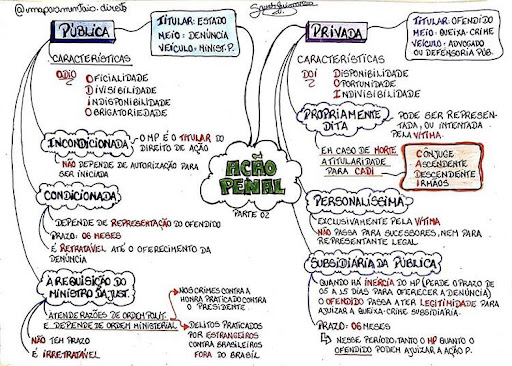 @mapasmentais.direito
PÚBLICA
TITULAR: ESTADO
MEIO: DENÚNCIA
VEÍCULO: MINIST. P.
CARACTERÍSTICAS
ODIO
OFICIALIDADE
DIVISIBILIDADE
INDISPONIBILIDADE
OBRIGATORIEDADE
INCONDICIONADA
O MP É O TITULAR DO
DIREITO DE AÇÃO
NÃO DEPENDE DE AUTORIZAÇÃO PARA
SER INICIADA
CONDICIONADA
DEPENDE DE REPRESENTAÇÃO DO OFENDIDO
PRAZO: 06 MESES
É RETRATÁVEL ATÉ O OFERECIMENTO DA
DENÚNCIA
À REQUISIÇÃO DO
MINISTRO DA JUST.
ATENDE RAZÕES DE ORDEM POLIT.
E DEPENDE DE ORDEM MINISTERIAL
NÃO TEM PRAZO
É IRRETRATÁVEL
NOS CRIMES CONTRA A
HONRA PRATICADO CONTRA
O PRESIDENTE.
DELITOS PRATICADOS
POR ESTRANGEIROS
CONTRA BRASILEIROS
FORA DO BRASIL
AÇÃO
PENAL
PARTE 02
PRIVADA
TITULAR: OFENDIDO
MEIO: QUEIXA-CRIME
VEÍCULO: ADVOGADO
OU DEFENSORIA PÚB.
CARACTERÍSTICAS
DOI
DISPONIBILIDADE
OPORTUNIDADE
INDIVISIBILIDADE
PROPRIAMENTE
DITA
PODE SER REPRESEN-
TADA, OU INTENTADA
PELA VÍTIMA.
EM CASO DE MORTE
A TITULARIDADE
PARA CADI
CÔNJUGE
ASCENDENTE
DESCENDENTE
IRMÃOS
PERSONALÍSSIMA
EXCLUSIVAMENTE PELA VÍTIMA
NÃO PASSA PARA SUCESSORES, NEM PARA
REPRESENTANTE LEGAL
SUBSIDIÁRIA DA PÚBLICA
QUANDO HÁ INÉRCIA DO MP (PERDE O PRAZO DE
05 A 15 DIAS PARA OFERECER A DENÚNCIA)
O OFENDIDO PASSA A TER LEGITIMIDADE PARA
AJUIZAR A QUEIXA-CRIME SUBSIDIÁRIA.
PRAZO: 06 MESES
NESSE PERÍODO, TANTO O MP QUANTO O
OFENDIDO PODEM AJUIZAR A AÇÃO P.